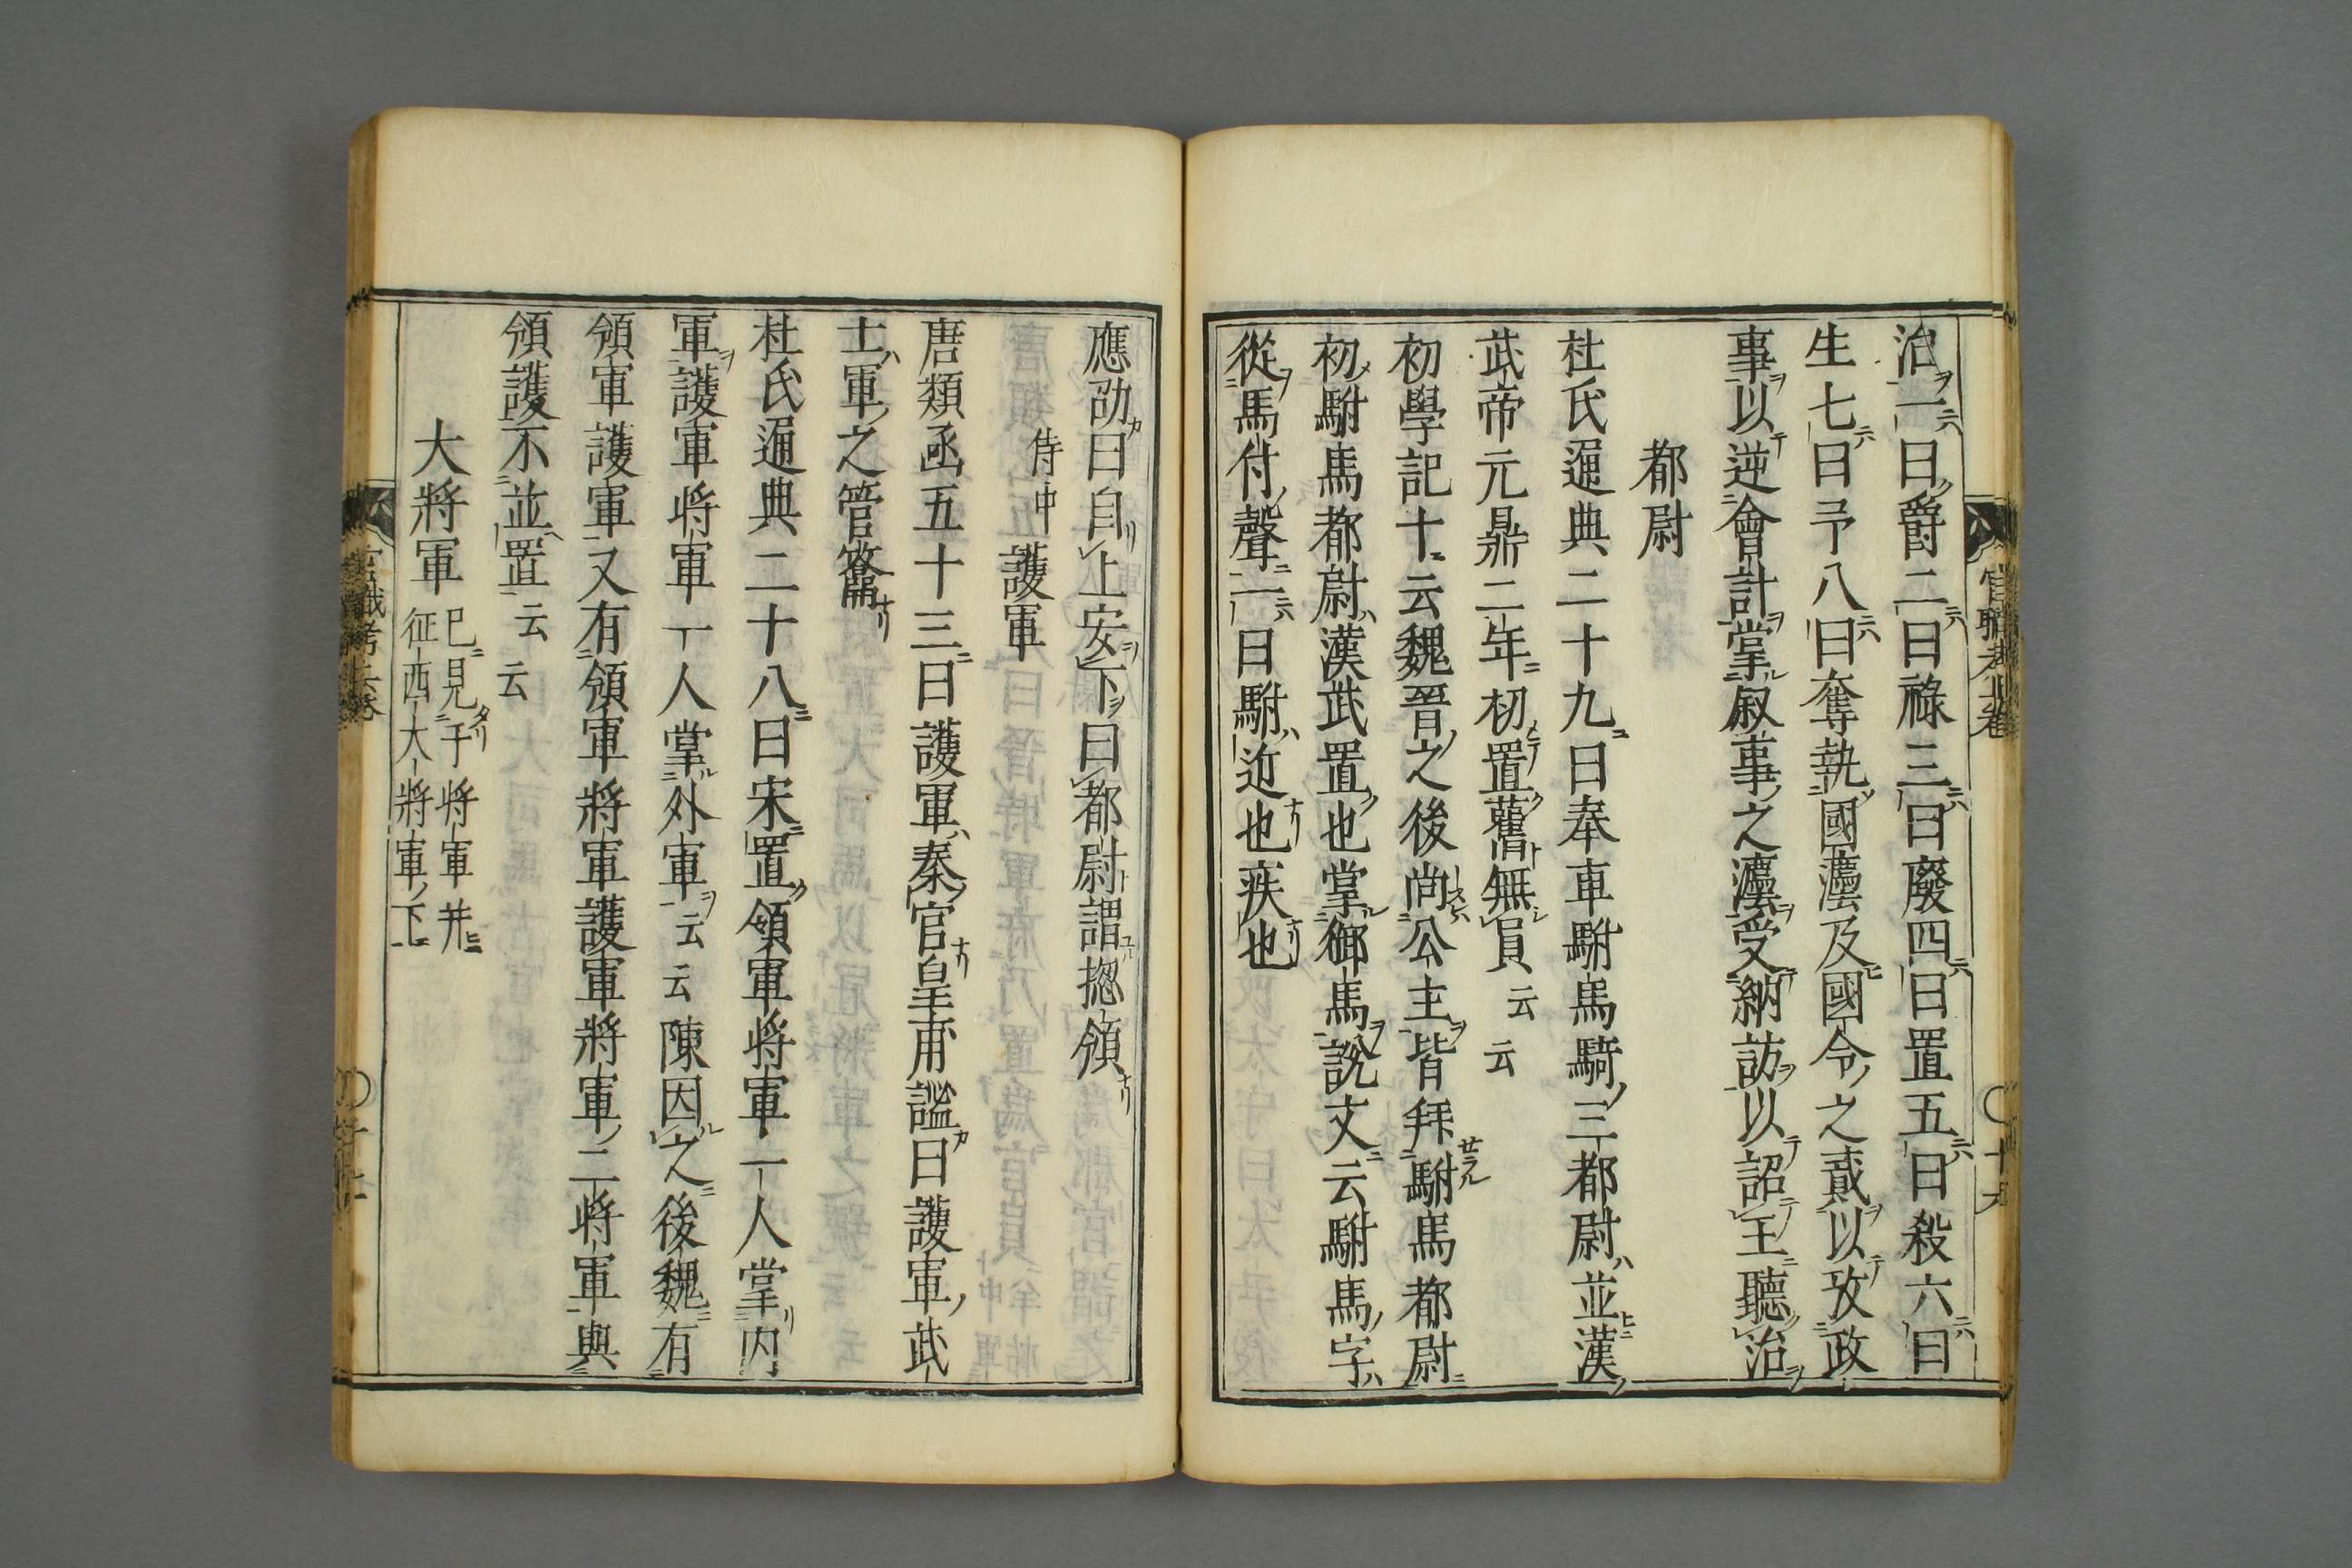 治一曰爵二曰祿三曰廢四曰置五曰殺六曰
生七曰予八曰奪執國灋及國令之貳以攷政
事以逆會計掌叙事之灋受納訪以詔王聽治
都尉
杜氏通典二十九曰奉車駙馬騎三都尉並漢
武帝元鼎二年初置舊無員云云
初學記十云魏晉之後尚公主皆拜駙馬都尉
初駙馬都尉漢武置也掌御馬說文云駙馬字
從馬付聲一曰駙近也疾也
應劭曰自上安下曰都尉謂摠領
侍中護軍
唐類函五十三曰護軍秦官皇甫謐曰護軍武
士軍之管籥
杜氏通典二十八曰宋置領軍将軍一人掌内
軍護軍将軍一人掌外軍云云陳因之後魏有
領軍護軍又有領軍將軍護軍將軍二將軍與
領護不並置云云
大將軍
已見于将軍并
征西大将軍下